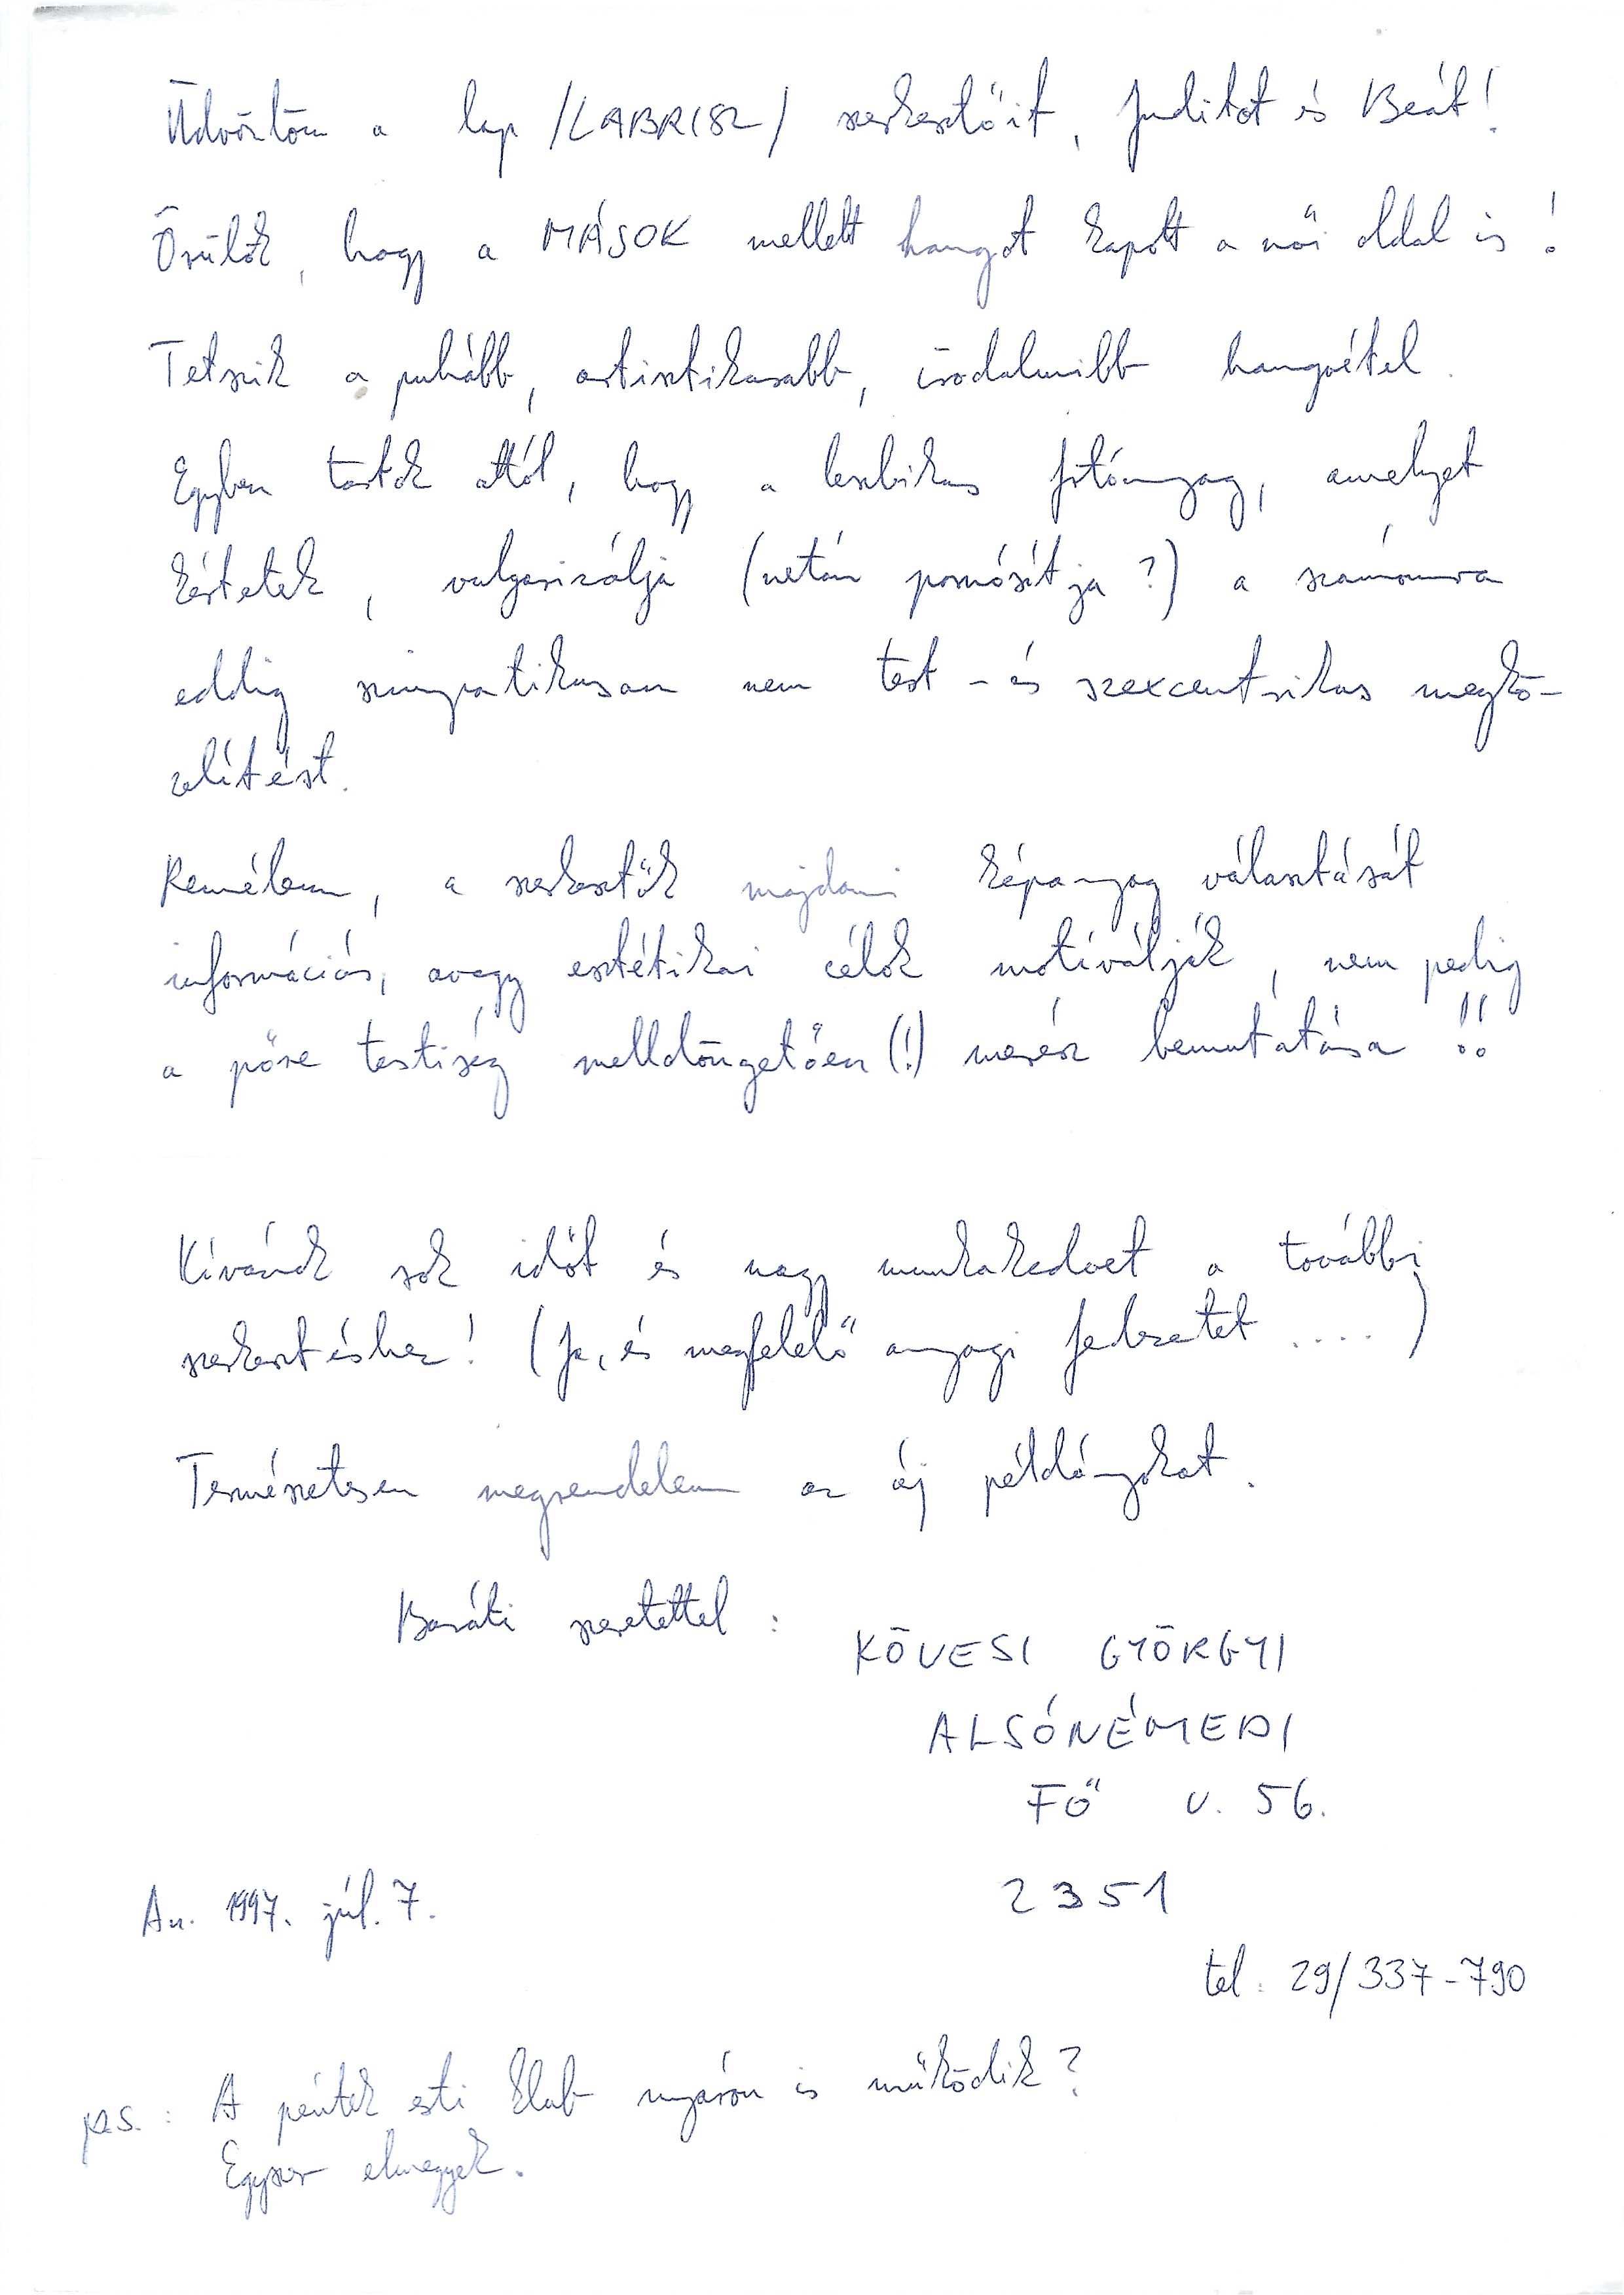 Üdvözlöm a lap /LABRISZ/ szerkesztőit, Juditot és Beát!
Örülök, hogy a MÁSOK mellett hangot kapott a női oldal is!
Tetszik a puhább, artisztikusabb, irodalmibb hangvétel.
Egyben tartok attól, hogy a leszbikus fotóanyag, amelyet
kértetek, vulgarizálja (netán pornósítja?) a számomra
eddig szimpatikusan nem test- és szexcentrikus megkö-
zelítést.
Remélem, a szerkesztők majdani képanyag választását
információs, avagy esztétikai célok motiválják, nem pedig
a pőre testiség melldöngetően(!) merész bemutatása!!
Kívánok sok időt és nagy munkakedvet a további
szerkesztéshez! (Ja, és megfelelő anyagi fedezetet ....)
Természetesen megrendelem az új példányokat.
Baráti szeretettel:
KÖVESI GYÖRGYI
ALSÓNÉMEDI
FŐ U. 56.
2351
An. 1997. júl. 7.
tel. 29/337-790
p.s.: A péntek esti klub nyáron is működik?
Egyszer elmegyek.